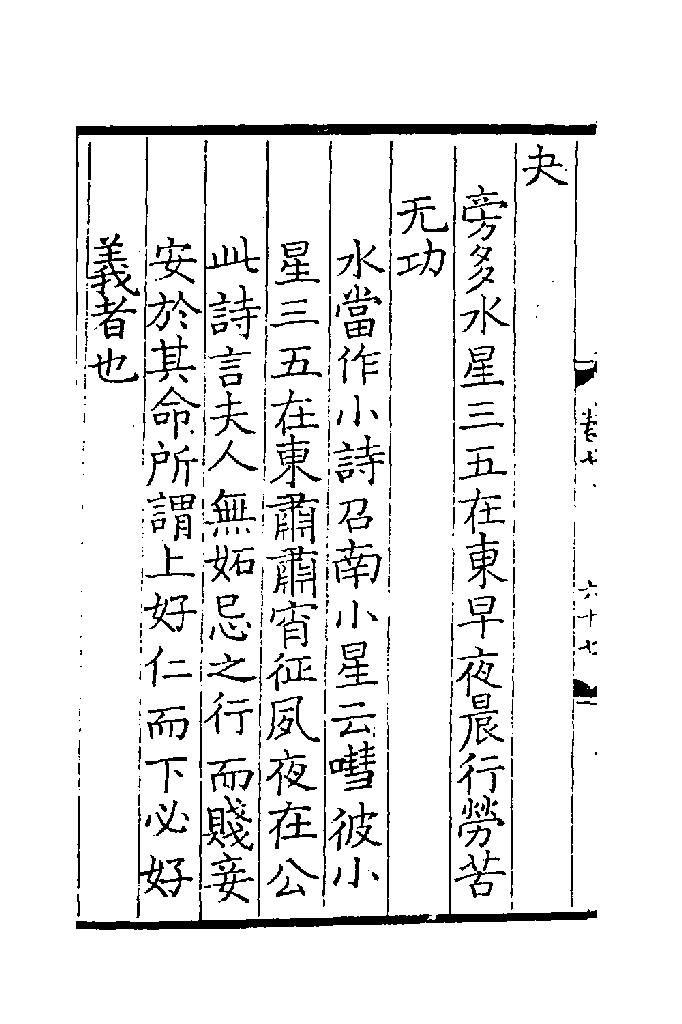 夬
旁多水星三五在東早夜晨行勞苦
无功
水當作小詩召南小星云嘒彼小
星三五在東肅肅宵征夙夜在公
此詩言夫人無妬忌之行而賤妾
安於其命所謂上好仁而下必好
義者也
卷七
六十七